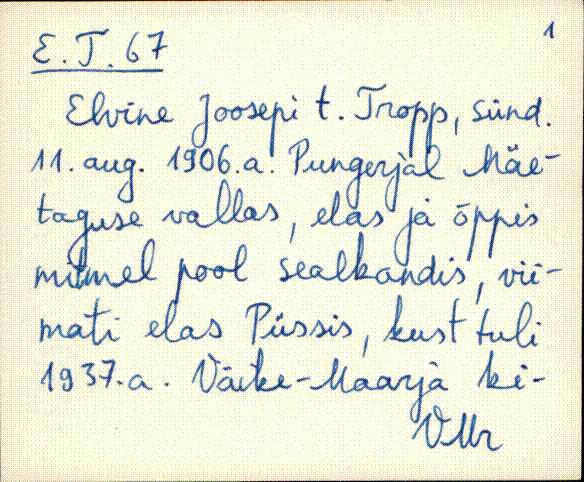 1
E.T.67
Elvine Joosepi t. Tropp, sünd.
11. aug. 1906.a. Pungerjal Mäe-
taguse vallas, elas ja õppis
mitmel pool sealkandis, vii-
mati elas Püssis, kust tuli
1937.a. Väike-Maarja ki-
VMr